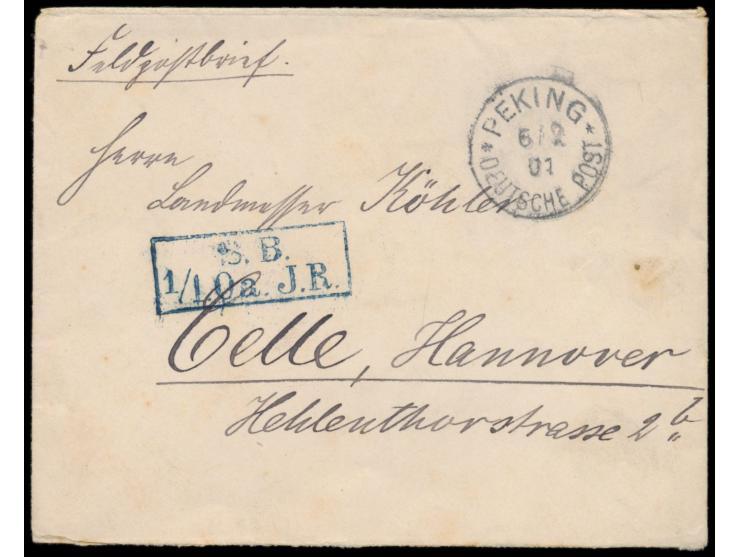 Feldpostbrief.
* PEKING *
6/2
01
DEUTSCHE POST
Herrn
Landmesser Köhler
S. B.
1/1.Oa. J.R.
Celle, Hannover
Hehlenthorstrasse 2 b